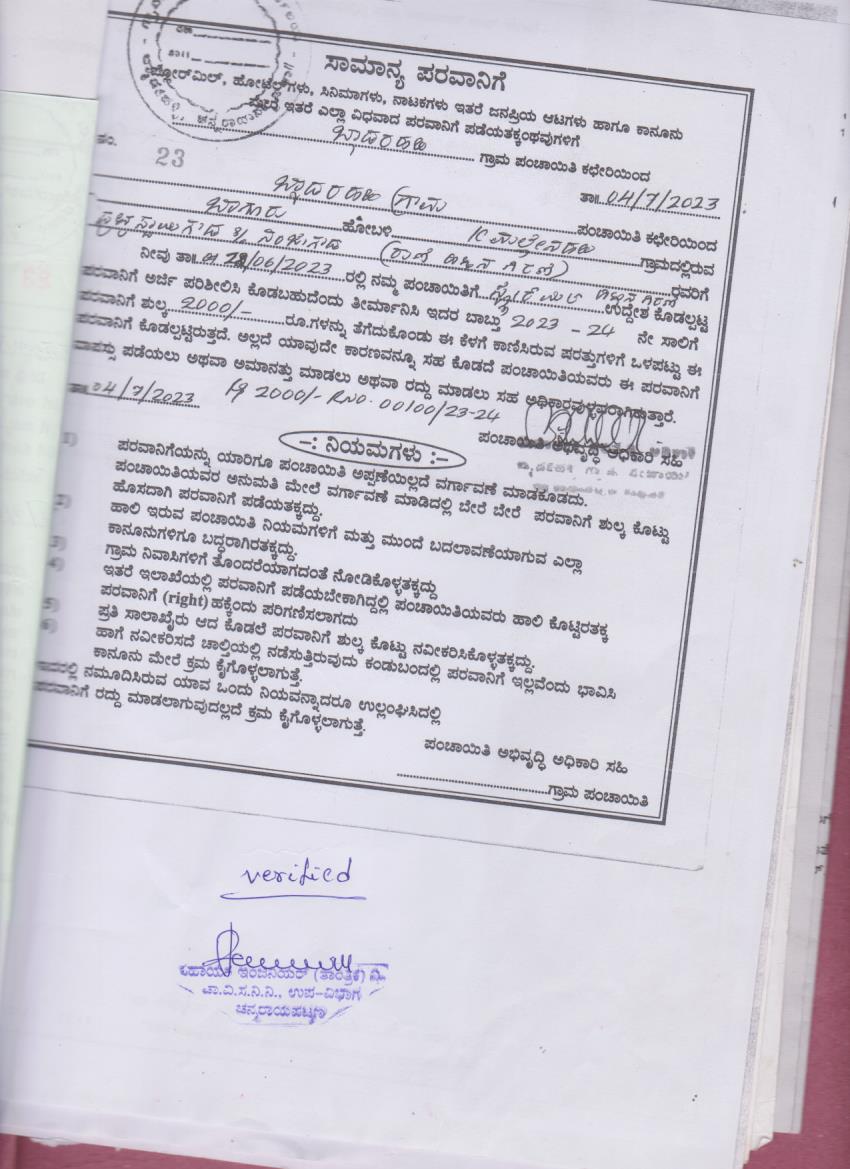 ಸಾಮಾನ್ಯ ಪರವಾನಿಗೆ
ಫ್ಲೋರ್‌ಮಿಲ್, ಹೋಟೆಲ್‌ಗಳು, ಸಿನಿಮಾಗಳು, ನಾಟಕಗಳು ಇತರೆ ಜನಪ್ರಿಯ ಆಟಗಳು ಹಾಗೂ ಕಾನೂನು
ಮೇಲೆ ಇತರೆ ಎಲ್ಲಾ ವಿಧವಾದ ಪರವಾನಿಗೆ ಪಡೆಯತಕ್ಕಂಥವುಗಳಿಗೆ
ಬ್ಯಾಡರಹಳ್ಳಿ ಗ್ರಾಮ ಪಂಚಾಯಿತಿ ಕಛೇರಿಯಿಂದ
ನಂ. 23
ತಾ॥ 04/7/2023
ಬ್ಯಾಡರಹಳ್ಳಿ ಗ್ರಾಮ ಪಂಚಾಯಿತಿ ಕಛೇರಿಯಿಂದ
ಬಾಗೂರು ಹೋಬಳಿ ಗ್ರಾಮದಲ್ಲಿರುವ
ರವರಿಗೆ
ನೀವು ತಾ॥ 28/06/2023 ರಲ್ಲಿ ನಮ್ಮ ಪಂಚಾಯಿತಿಗೆ ಉದ್ದೇಶ ಕೊಡಲ್ಪಟ್ಟ
ಪರವಾನಿಗೆ ಅರ್ಜಿ ಪರಿಶೀಲಿಸಿ ಕೊಡಬಹುದೆಂದು ತೀರ್ಮಾನಿಸಿ ಇದರ ಬಾಬ್ತು 2023 - 24 ನೇ ಸಾಲಿಗೆ
ಪರವಾನಿಗೆ ಶುಲ್ಕ 2000/- ರೂ.ಗಳನ್ನು ತೆಗೆದುಕೊಂಡು ಈ ಕೆಳಗೆ ಕಾಣಿಸಿರುವ ಷರತ್ತುಗಳಿಗೆ ಒಳಪಟ್ಟು ಈ
ಪರವಾನಿಗೆ ಕೊಡಲ್ಪಟ್ಟಿರುತ್ತದೆ. ಅಲ್ಲದೆ ಯಾವುದೇ ಕಾರಣವನ್ನೂ ಸಹ ಕೊಡದೆ ಪಂಚಾಯಿತಿಯವರು ಈ ಪರವಾನಿಗೆ
ವಾಪಸ್ಸು ಪಡೆಯಲು ಅಥವಾ ಅಮಾನತ್ತು ಮಾಡಲು ಅಥವಾ ರದ್ದು ಮಾಡಲು ಸಹ ಅಧಿಕಾರವುಳ್ಳವರಾಗಿರುತ್ತಾರೆ.
ತಾ॥ 04/7/2023 2000/- RNO. 00100/23-24
ಪಂಚಾಯಿತಿ ಅಭಿವೃದ್ಧಿ ಅಧಿಕಾರಿ ಸಹಿ
-: ನಿಯಮಗಳು :-
1) ಪರವಾನಿಗೆಯನ್ನು ಯಾರಿಗೂ ಪಂಚಾಯಿತಿ ಅಪ್ಪಣೆಯಿಲ್ಲದೆ ವರ್ಗಾವಣೆ ಮಾಡಕೂಡದು.
ಪಂಚಾಯಿತಿಯವರ ಅನುಮತಿ ಮೇಲೆ ವರ್ಗಾವಣೆ ಮಾಡಿದಲ್ಲಿ ಬೇರೆ ಬೇರೆ ಪರವಾನಿಗೆ ಶುಲ್ಕ ಕೊಟ್ಟು
ಹೊಸದಾಗಿ ಪರವಾನಿಗೆ ಪಡೆಯತಕ್ಕದ್ದು.
2) ಹಾಲಿ ಇರುವ ಪಂಚಾಯಿತಿ ನಿಯಮಗಳಿಗೆ ಮತ್ತು ಮುಂದೆ ಬದಲಾವಣೆಯಾಗುವ ಎಲ್ಲಾ
ಕಾನೂನುಗಳಿಗೂ ಬದ್ಧರಾಗಿರತಕ್ಕದ್ದು.
3) ಗ್ರಾಮ ನಿವಾಸಿಗಳಿಗೆ ತೊಂದರೆಯಾಗದಂತೆ ನೋಡಿಕೊಳ್ಳತಕ್ಕದ್ದು
4) ಇತರೆ ಇಲಾಖೆಯಲ್ಲಿ ಪರವಾನಿಗೆ ಪಡೆಯಬೇಕಾಗಿದ್ದಲ್ಲಿ ಪಂಚಾಯಿತಿಯವರು ಹಾಲಿ ಕೊಟ್ಟಿರತಕ್ಕ
ಪರವಾನಿಗೆ (right) ಹಕ್ಕೆಂದು ಪರಿಗಣಿಸಲಾಗದು
5) ಪ್ರತಿ ಸಾಲಾಖೈರು ಆದ ಕೂಡಲೆ ಪರವಾನಿಗೆ ಶುಲ್ಕ ಕೊಟ್ಟು ನವೀಕರಿಸಿಕೊಳ್ಳತಕ್ಕದ್ದು.
6) ಹಾಗೆ ನವೀಕರಿಸದೆ ಚಾಲ್ತಿಯಲ್ಲಿ ನಡೆಸುತ್ತಿರುವುದು ಕಂಡುಬಂದಲ್ಲಿ ಪರವಾನಿಗೆ ಇಲ್ಲವೆಂದು ಭಾವಿಸಿ
ಕಾನೂನು ಮೇರೆ ಕ್ರಮ ಕೈಗೊಳ್ಳಲಾಗುತ್ತೆ.
ಇದರಲ್ಲಿ ನಮೂದಿಸಿರುವ ಯಾವ ಒಂದು ನಿಯವನ್ನಾದರೂ ಉಲ್ಲಂಘಿಸಿದಲ್ಲಿ
ಪರವಾನಿಗೆ ರದ್ದು ಮಾಡಲಾಗುವುದಲ್ಲದೆ ಕ್ರಮ ಕೈಗೊಳ್ಳಲಾಗುತ್ತೆ.
ಪಂಚಾಯಿತಿ ಅಭಿವೃದ್ಧಿ ಅಧಿಕಾರಿ ಸಹಿ
ಗ್ರಾಮ ಪಂಚಾಯಿತಿ
verified
ಸಹಾಯಕ ಇಂಜಿನಿಯರ್ (ತಾಂತ್ರಿಕ)
ಚಾ.ವಿ.ಸ.ನಿ.ನಿ., ಉಪ-ವಿಭಾಗ
ಚನ್ನರಾಯಪಟ್ಟಣ